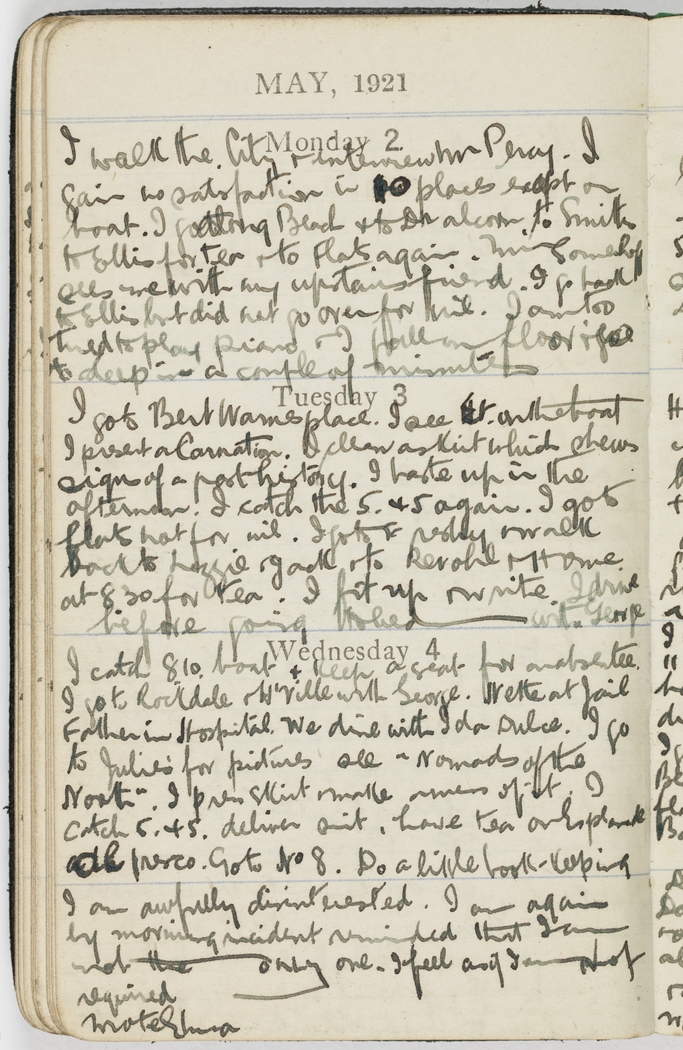 MAY, 1921
Monday 2
I walk the City & interview Mr Percy. I
gain no satisfaction in 10 places except on
boat. I go along Beach & to Dr alcorn, to Smiths
to Ellis for tea & to Flats again. Somehop
sees me with my upstairs friend. I go back
to Ellis but did not go over for nil. I am too
tired to play piano & I fall on floor & go
to sleep in a couple of minutes
Tuesday 3
I go to Bert Warnes place. I see on the boat
I present a Carnation. I clean a skirt which shews
signs of a past history. I haste up in the
afternoon. I catch the 5.45 again. I go to
flats not for nil. I go to & walk
back to Lizzie & Jack & to & Home
at 8 30 for tea. I fit up & write I dine
before going to bed with George
Wednesday 4
I catch 8 10 boat & keep a seat for an absentee.
I go to Rockdale & H'Ville with George. Nette at Jail
Father in Hospital. We dine with Ida Dulce. I go
to Julies for pictures see "Nomads of the
North". I press skirt & make a mess of it. I
catch 5.45. deliver suit, have tea on Esplanade
al fresco. Go to No 8. Do a little book-keeping
I am awfully disinterested. I am again
by morning incident reminded that I am
not the only one. I feel as if I am not
required
Wrote Elma